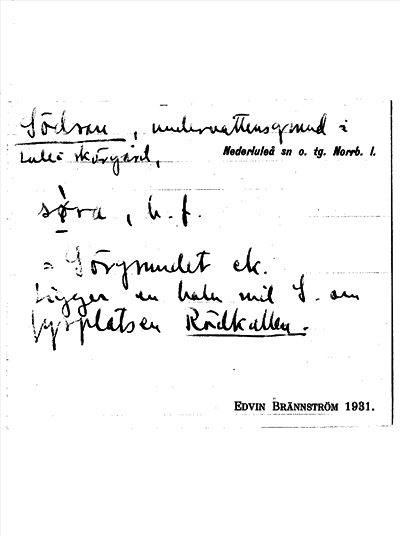 Södran, undervattensgrund i
Luleå skärgård, Nederluleå sn o. tg. Norrb. l.
søra, b. f.
= Sörgrundet ek.
Ligger en halv mil S. om
fyrplatsen Rödkallen.
EDVIN BRÄNNSTRÖM 1931.